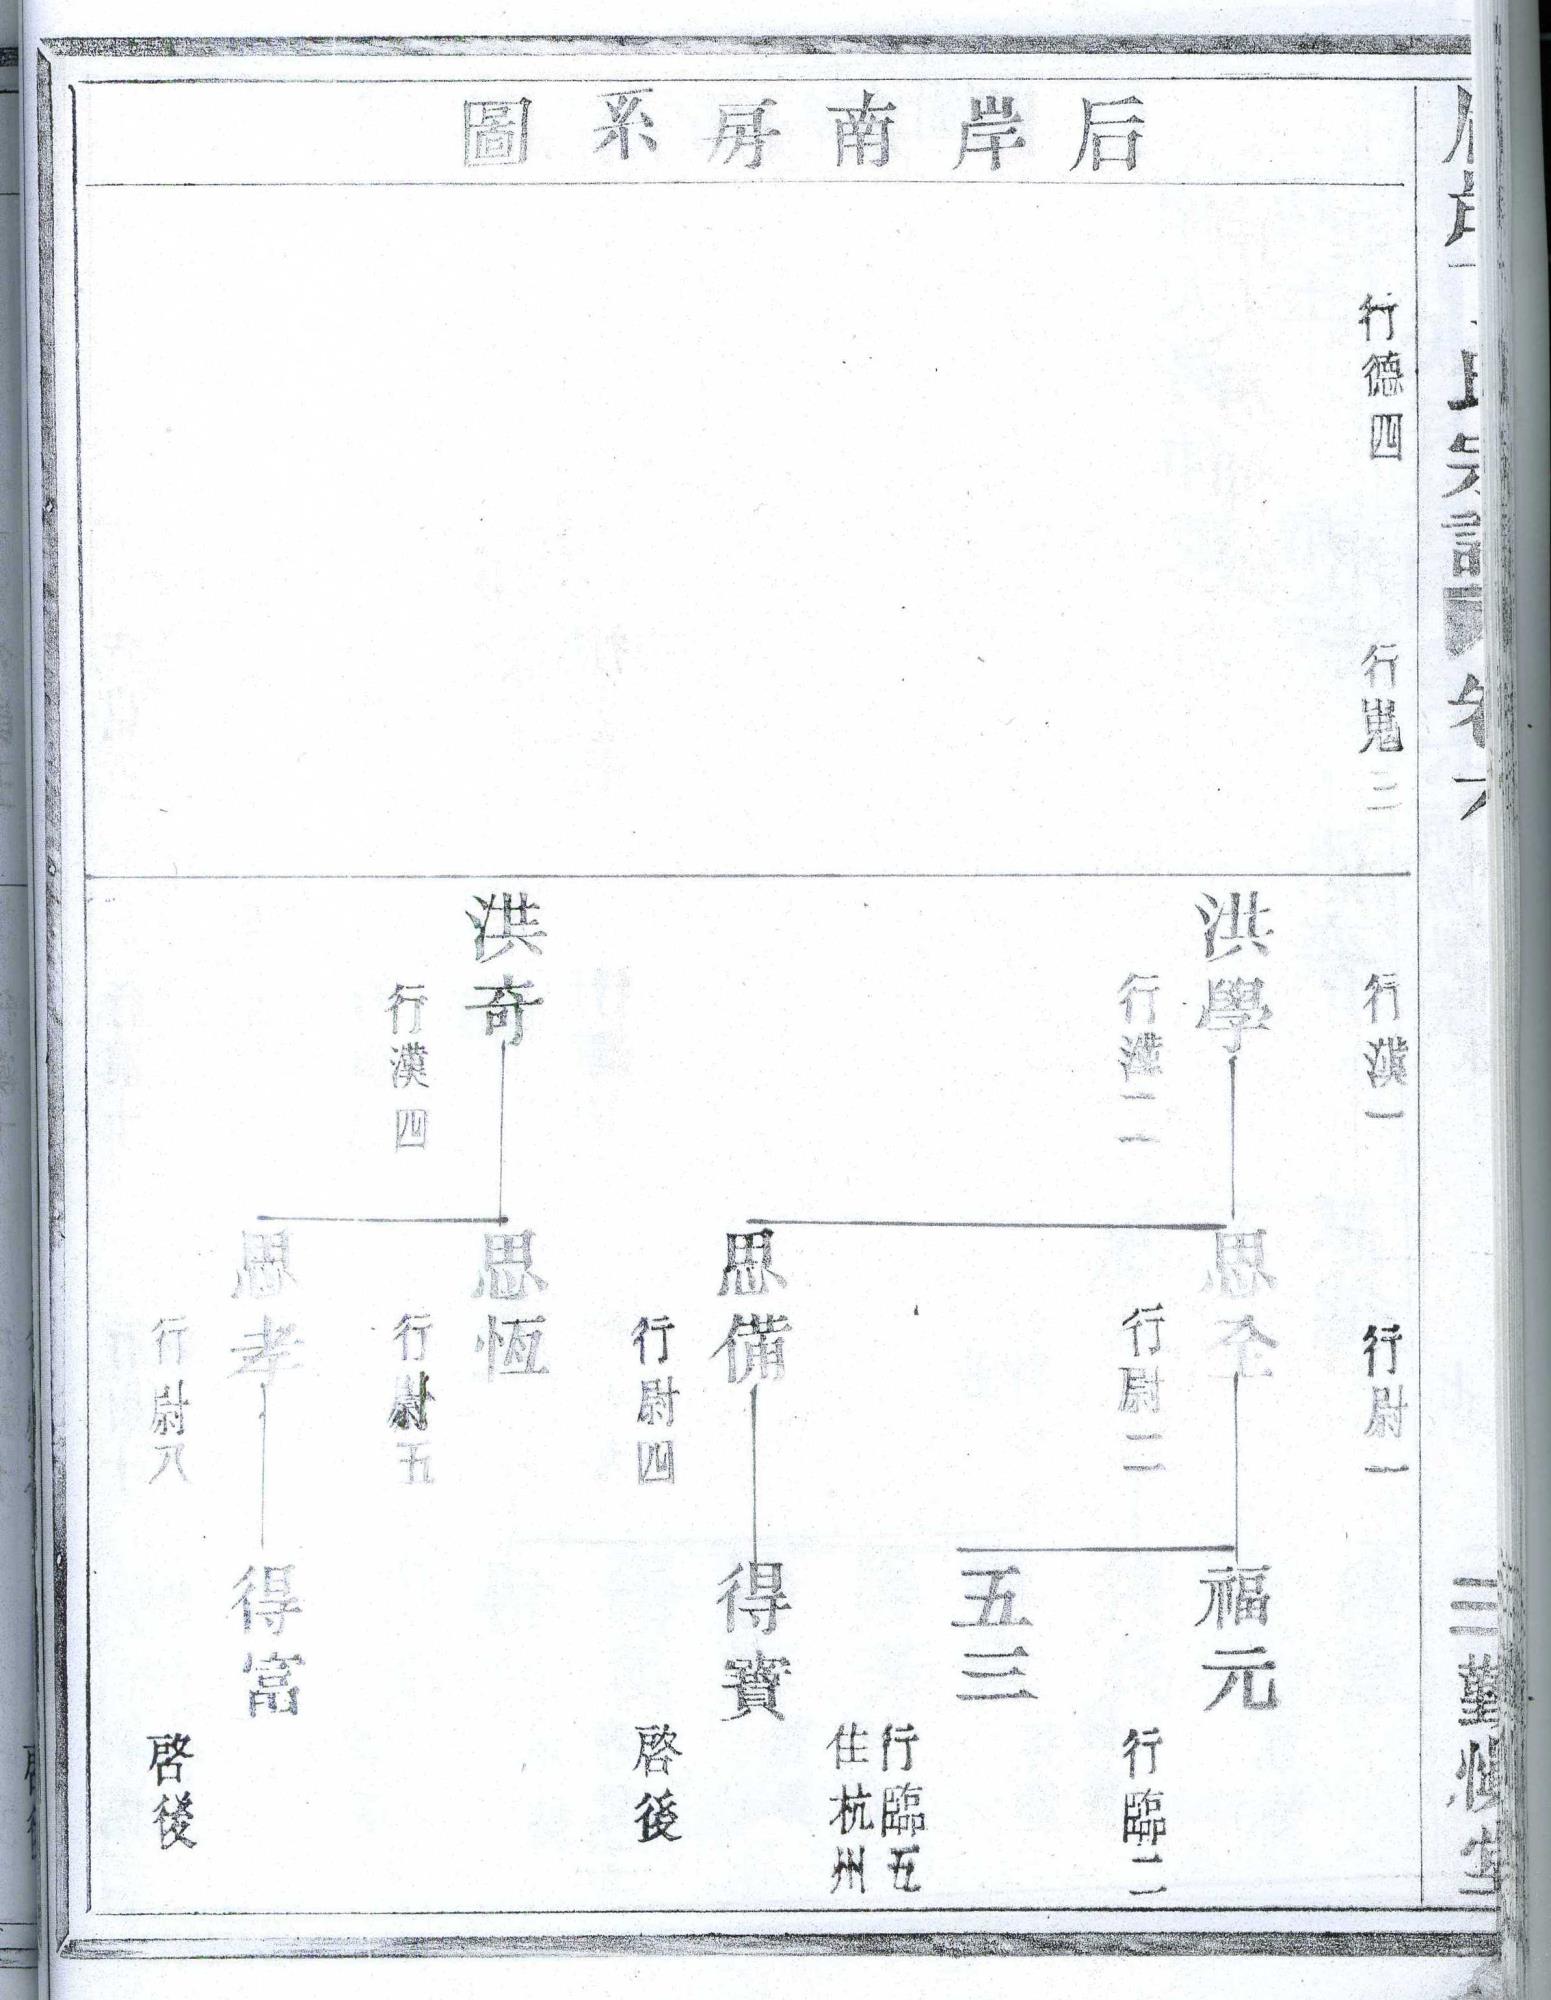 后岸南房系圖
宗譜
三勤慎堂
行德四
行嵬三
行漢一
行尉一
洪學
行漢二
思全
行尉二
福元
行臨二
五三
行臨五
住杭州
思備
行尉四
得寶
啓後
洪奇
行漢四
思恆
行尉五
思孝
行尉八
得富
啓後